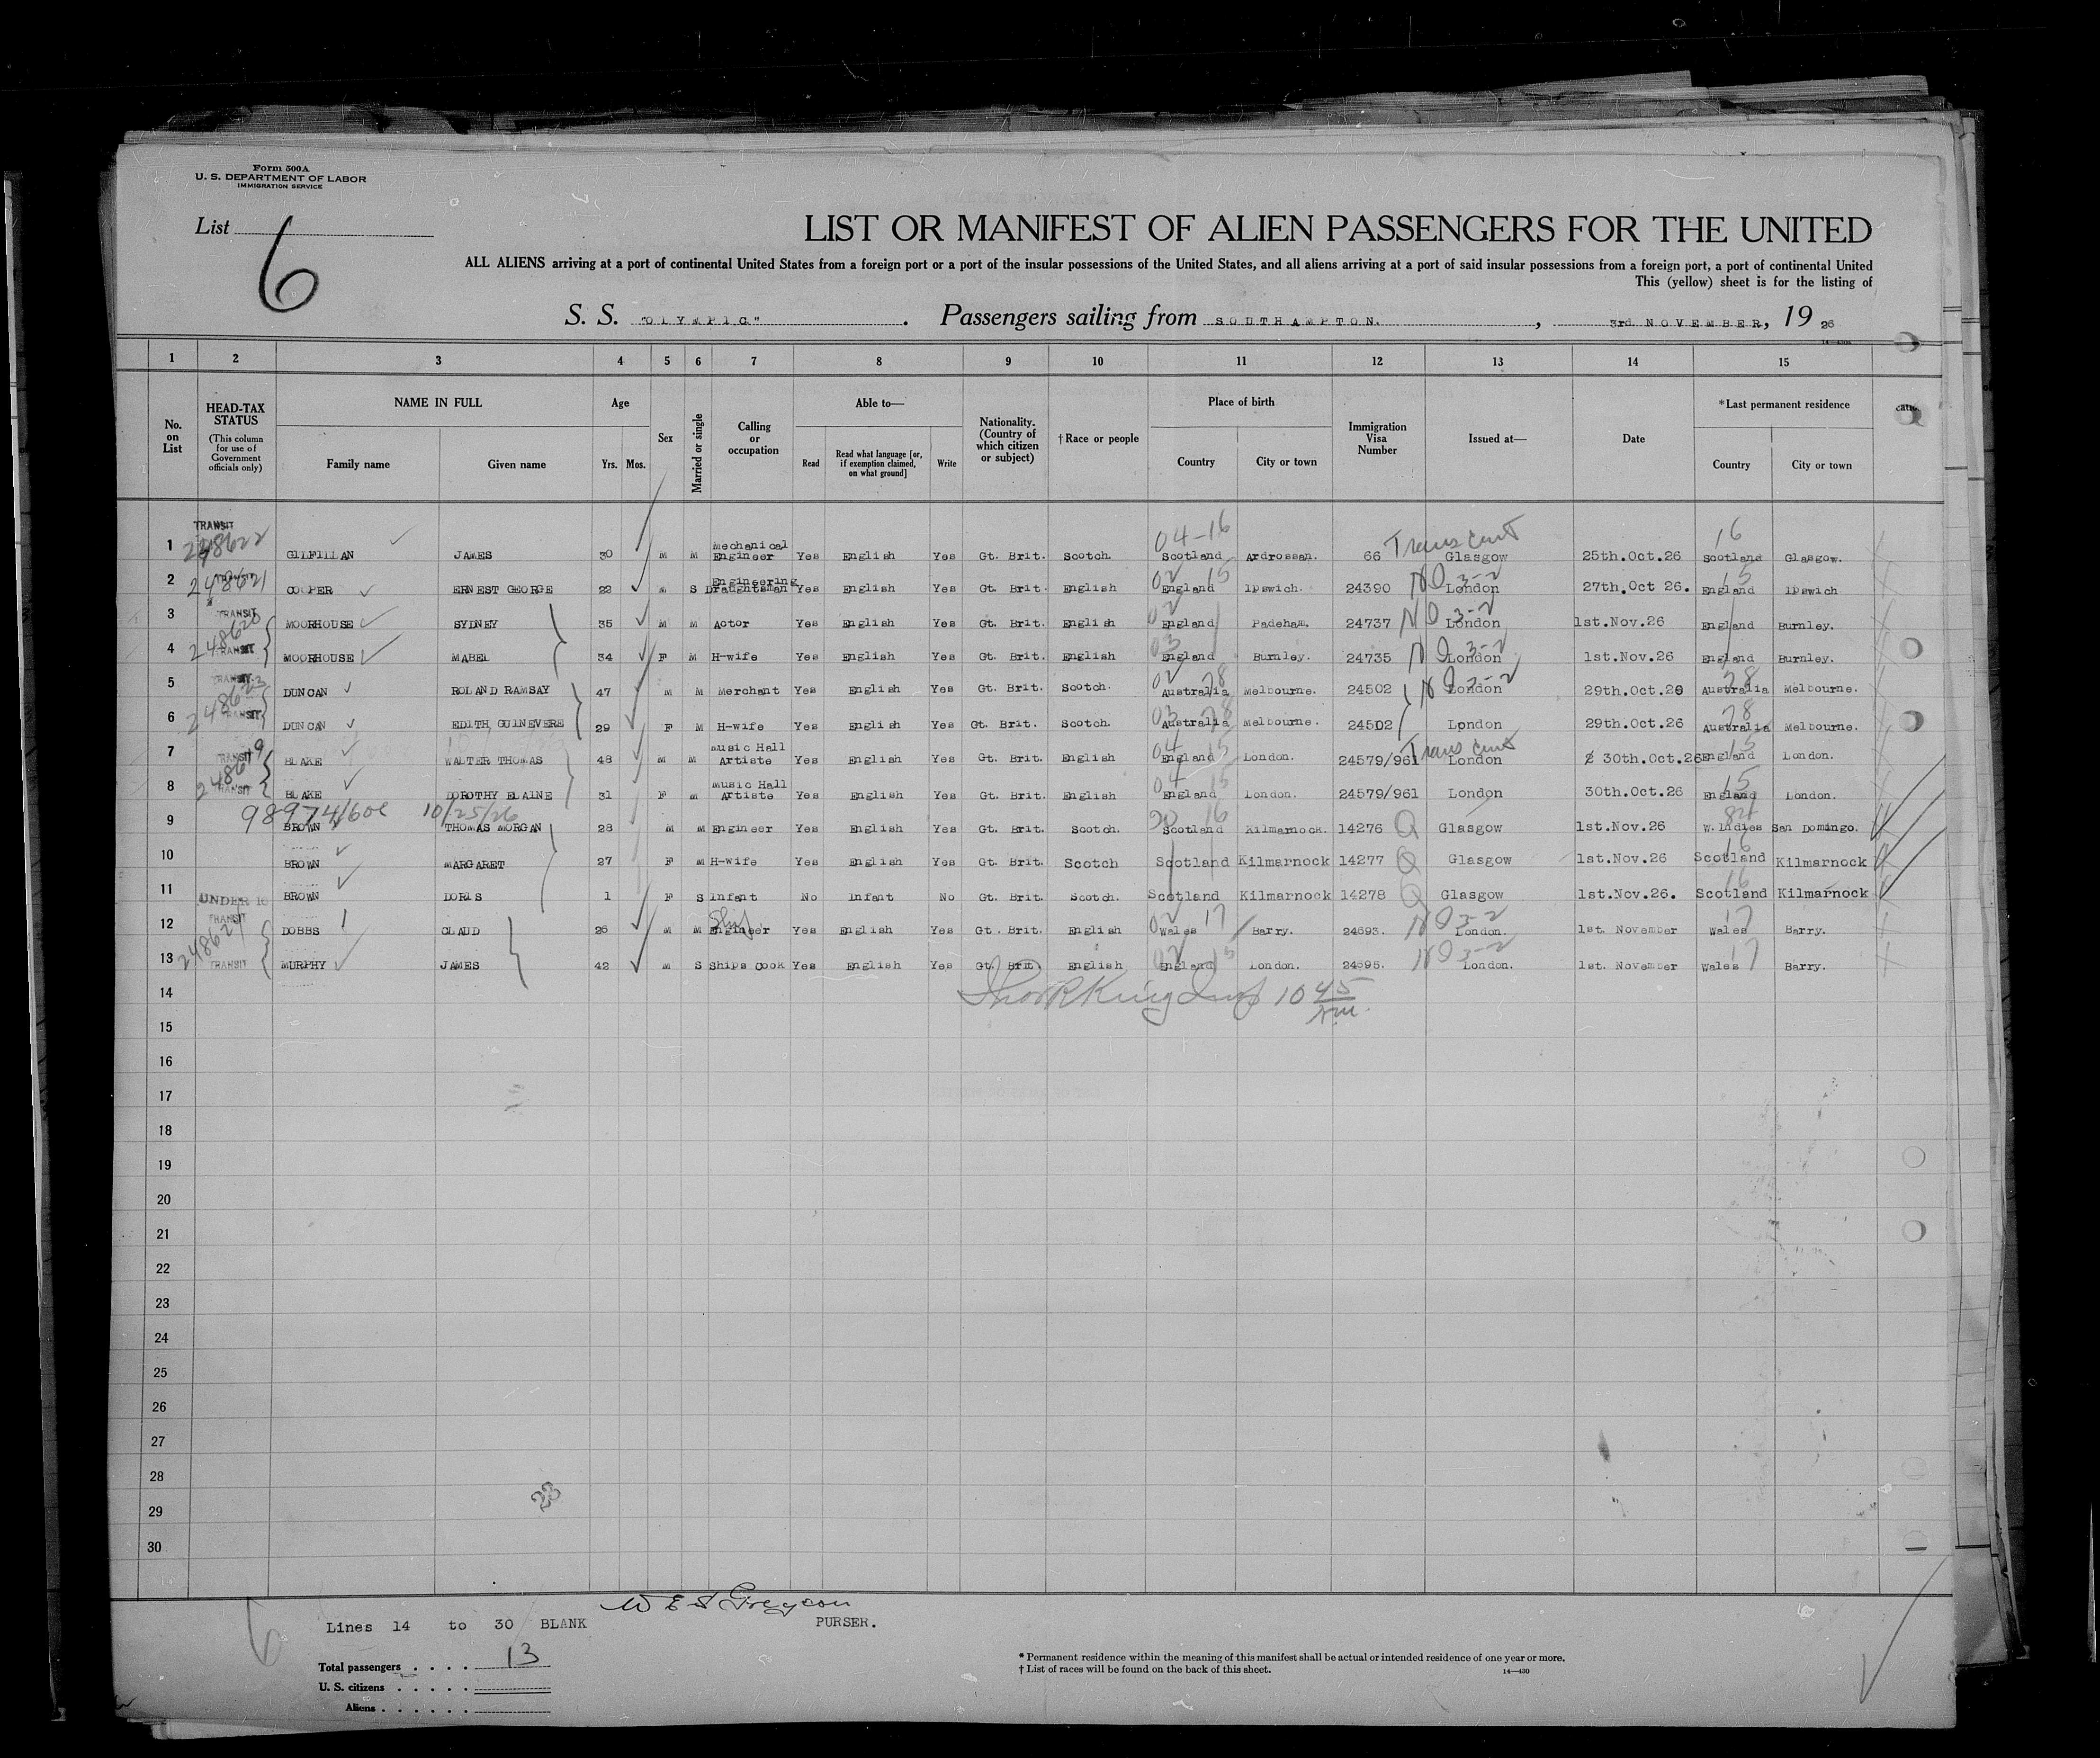 Form 500A
U. S. DEPARTMENT OF LABOR
IMMIGRATION SERVICE
List 6
LIST OR MANIFEST OF ALIEN PASSENGERS FOR THE UNITED
ALL ALIENS arriving at a port of continental United States from a foreign port or a port of the insular possessions of the United States, and all aliens arriving at a port of said insular possessions from a foreign port, a port of continental United
This (yellow) sheet is for the listing of
S. S. "OLYMPIC". Passengers sailing from SOUTHAMPTON., 3rd NOVEMBER, 19 26
1 2 3 4 5 6 7 8 9 10 11 12 13 14 15
No. on List HEAD-TAX STATUS (This column for use of Government officials only) NAME IN FULL Family name Given name Age Yrs. Mos. Sex Married or single Calling or occupation Able to— Read Read what language [or, if exemption claimed, on what ground] Write Nationality. (Country of which citizen or subject) †Race or people Place of birth Country City or town Immigration Visa Number Issued at— Date *Last permanent residence Country City or town
1 TRANSIT 248622 GILFILLAN JAMES 30 M M Mechanical Engineer Yes English Yes Gt. Brit. Scotch. 04-16 Scotland Ardrossan. 66 Trans cert Glasgow 25th.Oct.26 16 Scotland Glasgow.
2 248621 COOPER ERNEST GEORGE 22 M S Engineering Draughtsman Yes English Yes Gt. Brit. English 02 15 England Ipswich. 24390 NO 3-2 London 27th.Oct 26. 15 England Ipswich
3 TRANSIT MOORHOUSE SYDNEY 35 M M Actor Yes English Yes Gt. Brit. English 02 England Padeham. 24737 NO 3-2 London 1st.Nov.26 England Burnley.
4 248620 TRANSIT MOORHOUSE MABEL 34 F M H-wife Yes English Yes Gt. Brit. English 03 England Burnley. 24735 NO 3-2 London 1st.Nov.26 England Burnley.
5 TRANSIT 248623 DUNCAN ROLAND RAMSAY 47 M M Merchant Yes English Yes Gt. Brit. Scotch. 02 28 Australia Melbourne. 24502 NO 3-2 London 29th.Oct.26 28 Australia Melbourne.
6 TRANSIT DUNCAN EDITH GUINEVERE 29 F M H-wife Yes English Yes Gt. Brit. Scotch. 03 28 Australia Melbourne. 24502 London 29th.Oct.26 28 Australia Melbourne.
7 TRANSIT 248619 BLAKE WALTER THOMAS 48 M M Music Hall Artiste Yes English Yes Gt. Brit. English 04 15 England London. 24579/961 Trans cert London 30th.Oct.26 15 England London.
8 TRANSIT BLAKE DOROTHY ELAINE 31 F M Music Hall Artiste Yes English Yes Gt. Brit. English 04 15 England London. 24579/961 London 30th.Oct.26 15 England London.
10/25/26
9 BROWN THOMAS MORGAN 28 M M Engineer Yes English Yes Gt. Brit. Scotch. 16 Scotland Kilmarnock. 14276 Q Glasgow 1st.Nov.26 W. Indies San Domingo.
10 BROWN MARGARET 27 F M H-wife Yes English Yes Gt. Brit. Scotch Scotland Kilmarnock 14277 Q Glasgow 1st.Nov.26 16 Scotland Kilmarnock
11 UNDER 16 BROWN DORIS 1 F S Infant No Infant No Gt. Brit. Scotch. Scotland Kilmarnock 14278 Q Glasgow 1st.Nov.26. 16 Scotland Kilmarnock
12 TRANSIT DOBBS CLAUD 26 M M Ships Engineer Yes English Yes Gt. Brit. English 02 17 Wales Barry. 24693. NO 3-2 London. 1st. November 17 Wales Barry.
13 TRANSIT MURPHY JAMES 42 M S Ships Cook Yes English Yes Gt. Brit. English 02 15 England London. 24695. NO 3-2 London. 1st. November 17 Wales Barry.
14 10 45
15
16
17
18
19
20
21
22
23
24
25
26
27
28
29 23
30
Lines 14 to 30 BLANK
PURSER.
Total passengers . . . . 13
U. S. citizens . . . . .
Aliens . . . . . .
* Permanent residence within the meaning of this manifest shall be actual or intended residence of one year or more.
† List of races will be found on the back of this sheet.
14—430